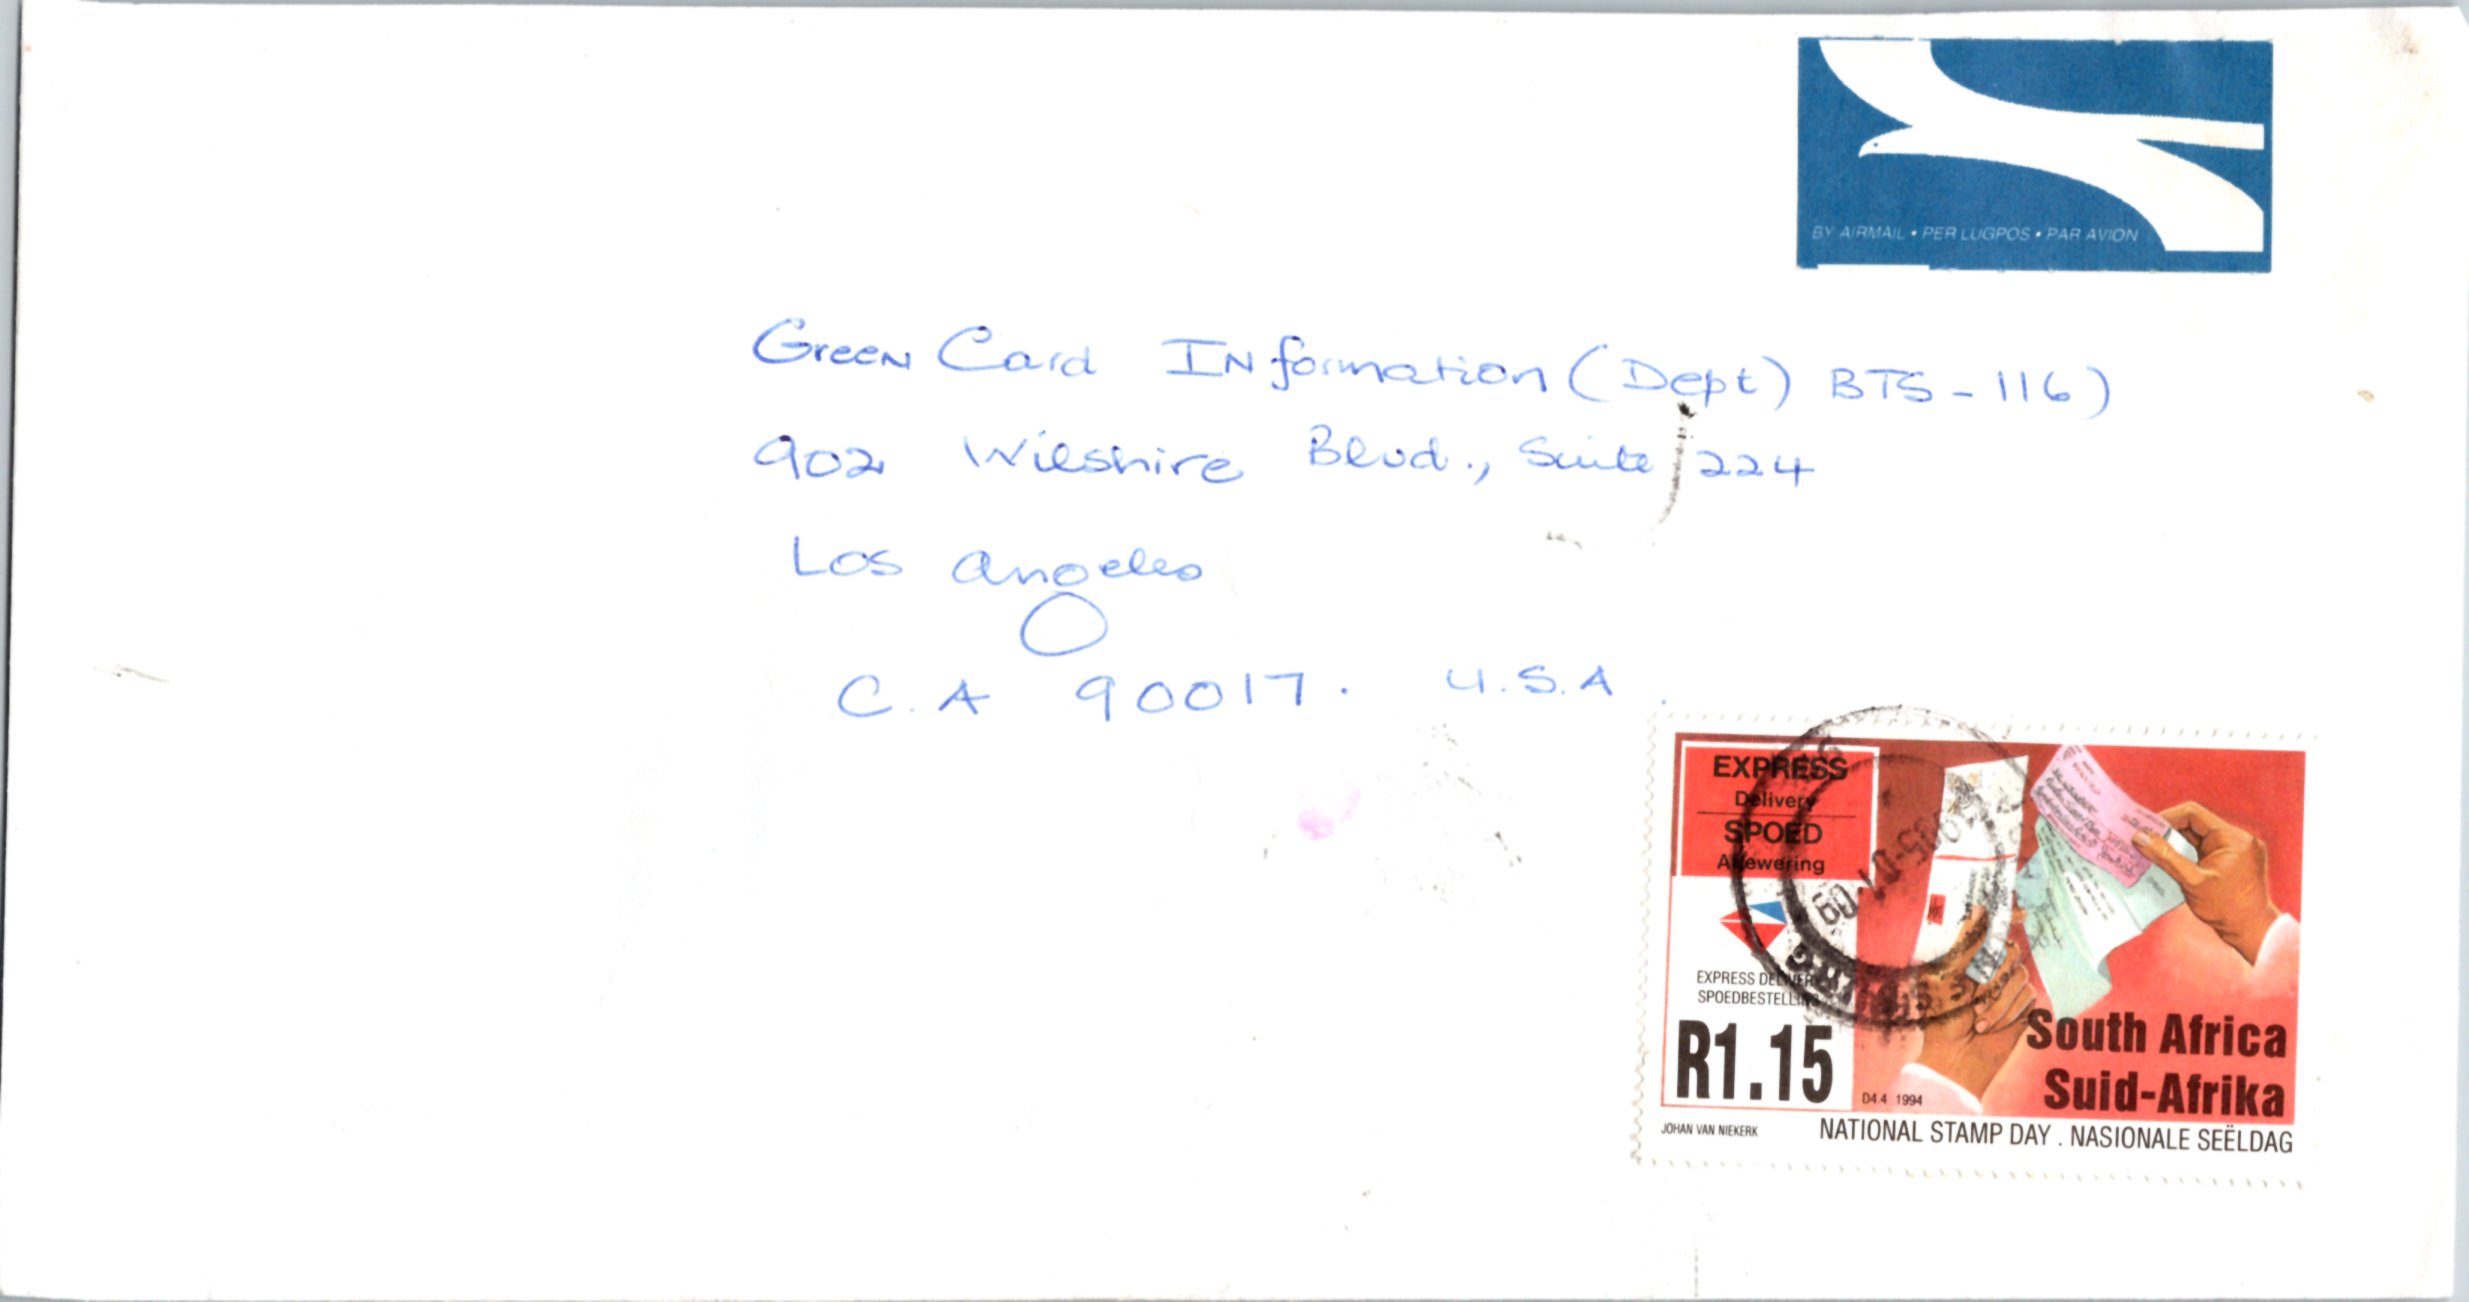 BY AIRMAIL • PER LUGPOS • PAR AVION
Green Card INformation (Dept) BTS - 116)
902 Wilshire Blvd., Suite 224
Los Angeles
C.A 90017. U.S.A.
EXPRESS
Delivery
SPOED
Aflewering
EXPRESS DELIVERY
SPOEDBESTELLING
R1.15
D4.4 1994
South Africa
Suid-Afrika
JOHAN VAN NIEKERK
NATIONAL STAMP DAY . NASIONALE SEËLDAG